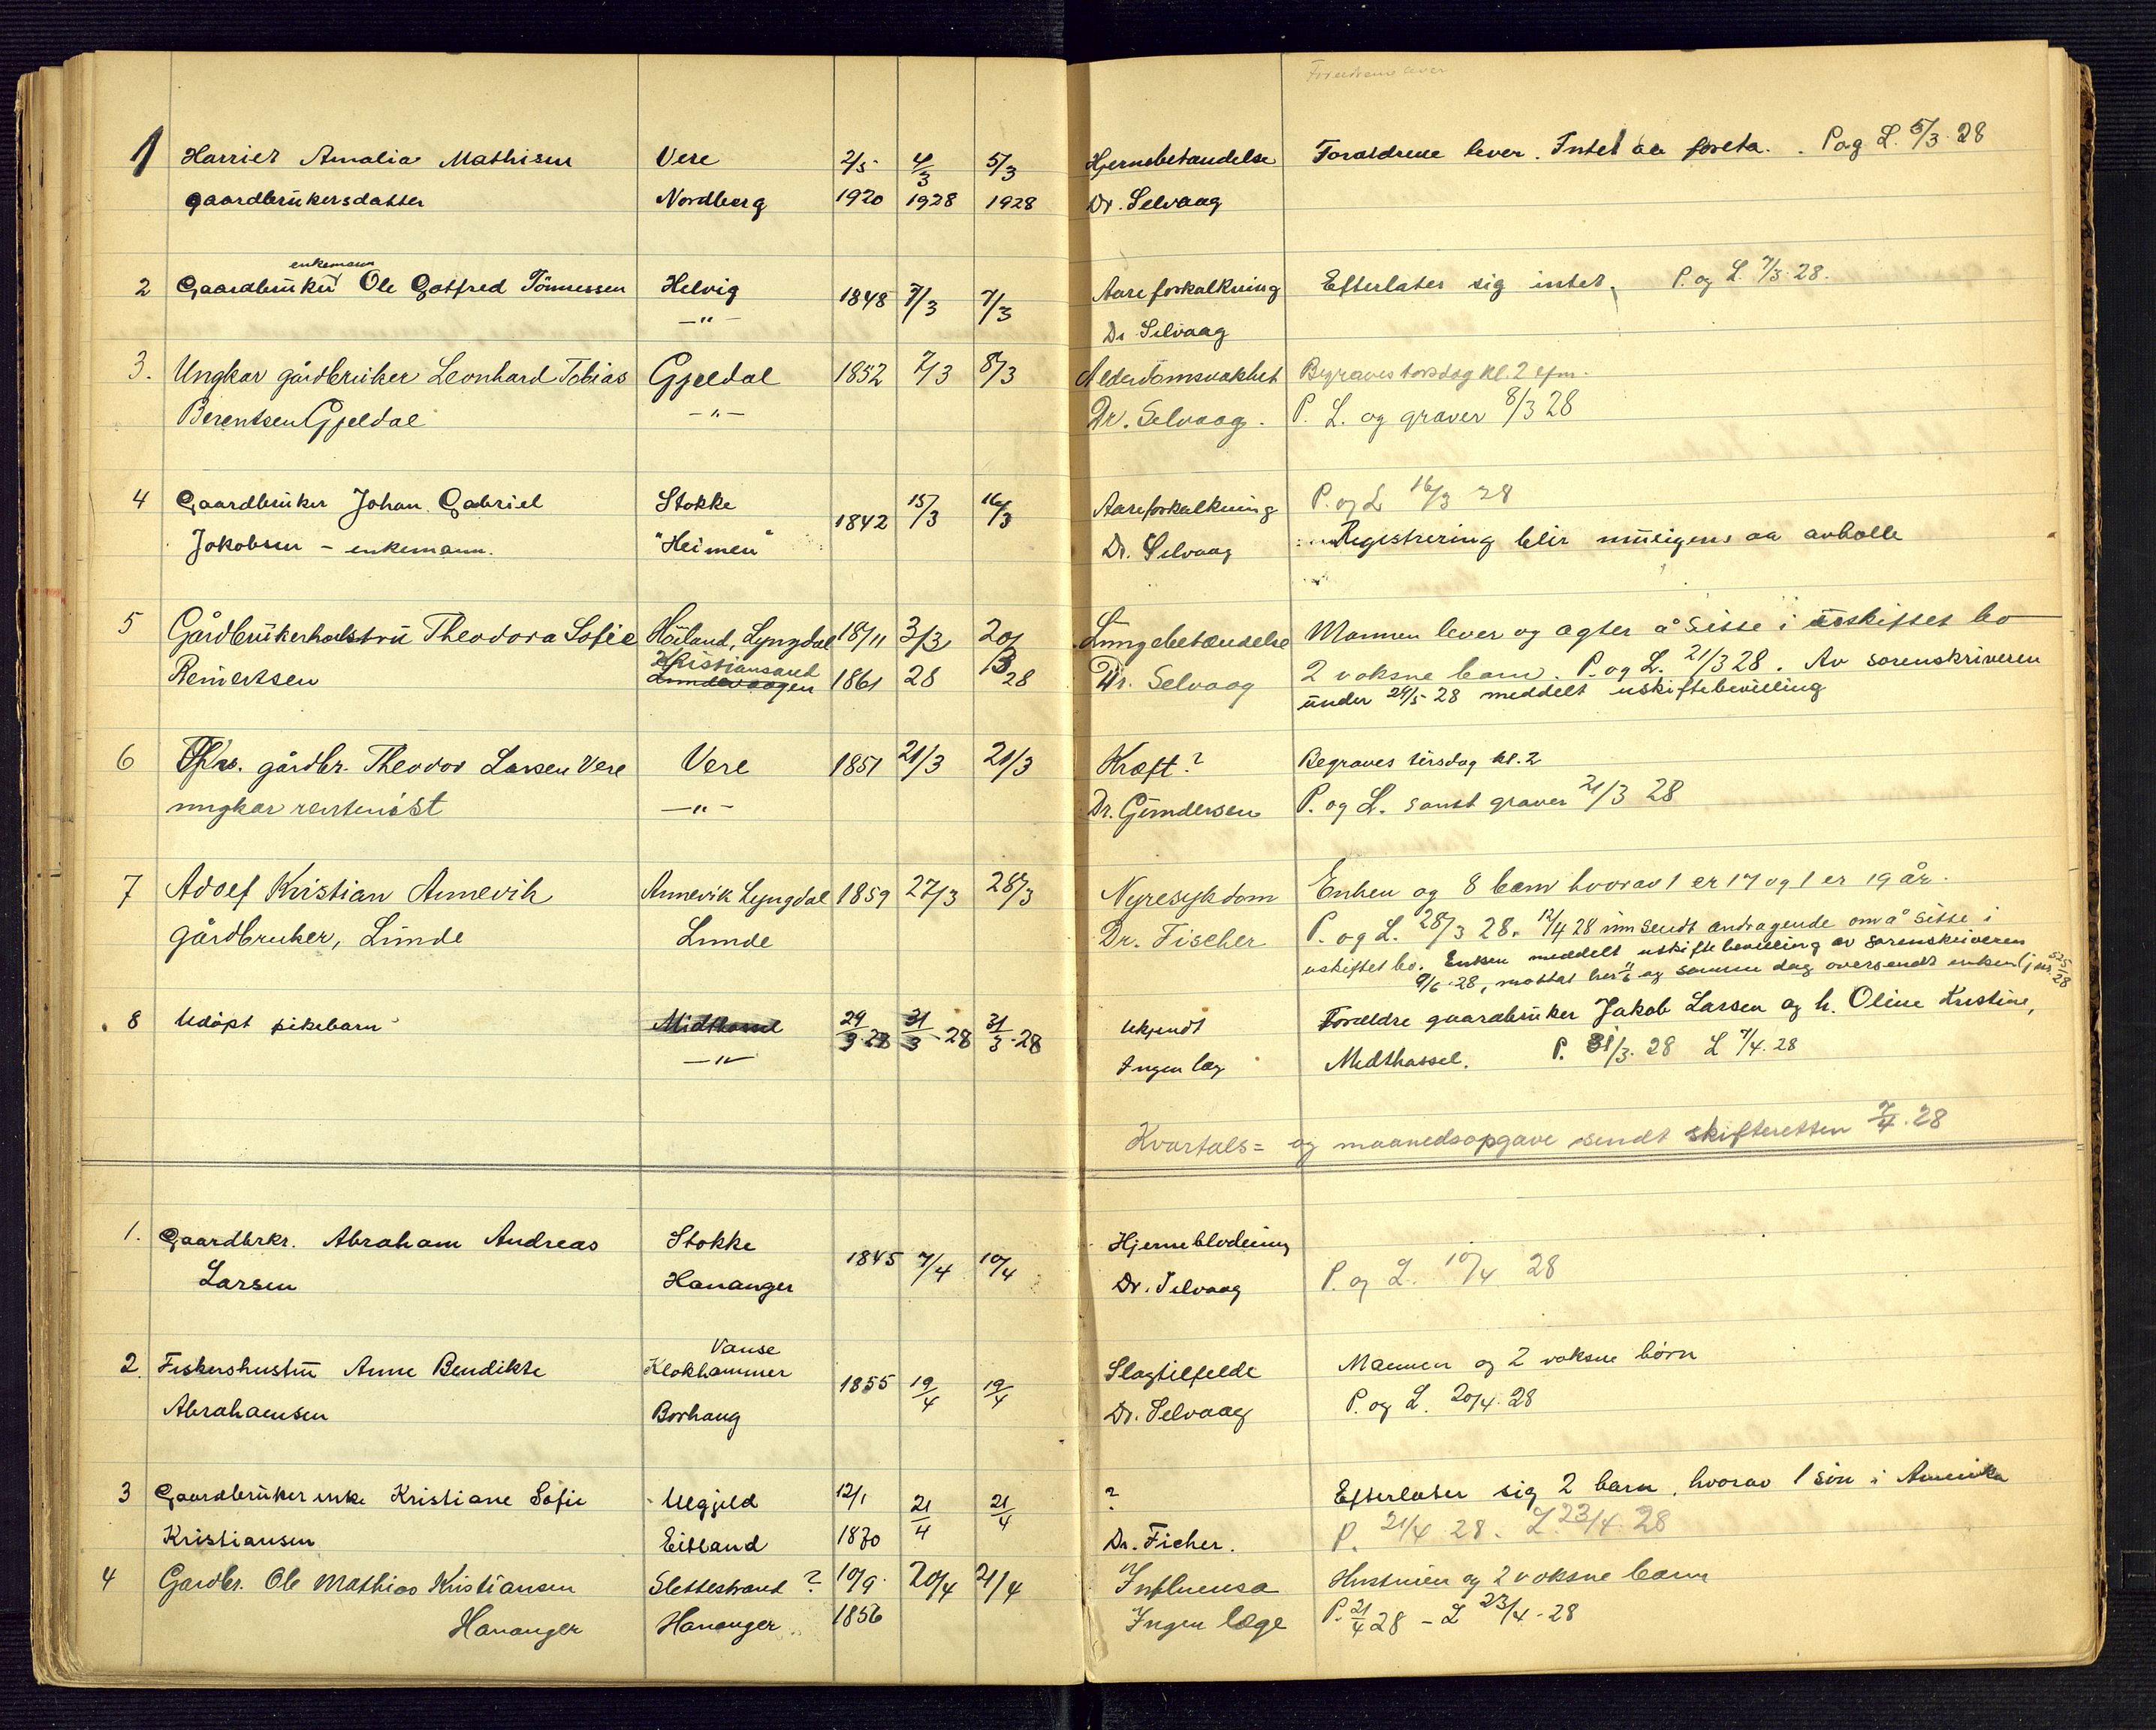 Forældrene lever
1 Harriet Amalia Mathisen Vere 2/5 4/3 5/3 Hjernebetændelse Forældrene lever. Intet aa foreta. P og L. 5/3. 28
gaardbrukersdatter Nordberg 1920 1928 1928 Dr. Selvaag
enkemann
2 Gaardbruker Ole Gotfred Tönnessen Helvig 1848 7/3 7/3 Aareforkalkning Efterlater sig intet. P. og L. 7/3. 28.
—"— Dr Selvaag
3. Ungkar gårdbruker Leonhard Tobias Gjeldal 1852 7/3 8/3 Alderdomsvakhet Begraves torsdag kl. 2 efm.
Berentsen Gjeldal —"— Dr. Selvaag. P. L. og graver 8/3 28
4 Gaardbruker Johan Gabriel Stokke 1842 15/3 16/3 Aareforkalkning P. og L 16/3 28
Jokobsen - enkemann. "Heimen" Dr. Selvaag Registrering blir muligens aa avholle
5 Gårdbrukerhustru Theodora Sofie Höiland, Lyngdal 18/11 3/3 20/3 Lungebetændelse Mannen lever og agter å sitte i uskiftet bo
Reinertsen Kristiansand 1861 28 28 Dr. Selvaag 2 voksne barn. P. og L. 21/3 28. Av sorenskriveren
under 24/5 28 meddelt uskiftebevilling
6 gårdbr. Theodor Larsen Vere Vere 1851 21/3 21/3 Kræft? Begraves tirsdag kl. 2
ungkar rentenist —"— Dr. Gundersen P. og L. samt graver 21/3 28
7 Adolf Kristian Annevik Annevik Lyngdal 1859 27/3 28/3 Nyresykdom Enken og 8 barn hvorav 1 er 17 og 1 er 19 år.
gårdbruker, Lunde Lunde Dr. Fischer P. og L. 28/3 28. 12/4 28 innsendt andragende om å sitte i
uskiftet bo. Enken meddelt uskiftebevilling av sorenskriveren
9/6 28, mottat her 11/6 og samme dag oversendt enken (j nr. 525/28
8 Udöpt pikebarn 29/3 28 31/3 - 28 31/3 - 28 Ukjendt Foreldre gaardbruker Jakob Larsen og h. Oline Kristine,
—"— Ingen læg Midthassel. P. 31/3. 28 L 7/4. 28
Kvartals= og maanedsopgave sendt skifteretten 7/4. 28
1. Gaardbrkr. Abraham Andreas Stokke 1845 7/4 10/4 Hjerneblödning
Larsen Hananger Dr. Selvaag P. og L. 10/4 28
Vanse
2. Fiskershustru Anne Bendikte Klokhammer 1855 19/4 19/4 Slagtilfelde Mannen og 2 voksne börn
Abrahamsen Borhaug Dr. Selvaag P. og L. 20/4. 28
3 Gaardbruker enke Kristiane Sofie Ulgjeld 12/1 21/4 21/4 ? Efterlater sig 2 barn, hvorav 1 sön i Amerika
Kristiansen Eitland 1830 Dr. Ficher. P. 21/4 28. L. 23/4. 28
4 Gardbr. Ole Mathias Kristiansen Slettestrand ? 10/9 20/4 21/4 Influensa Hustruen og 2 voksne barn
Hananger Hananger 1856 Ingen læge P. 21/4 28 - L 23/4 - 28